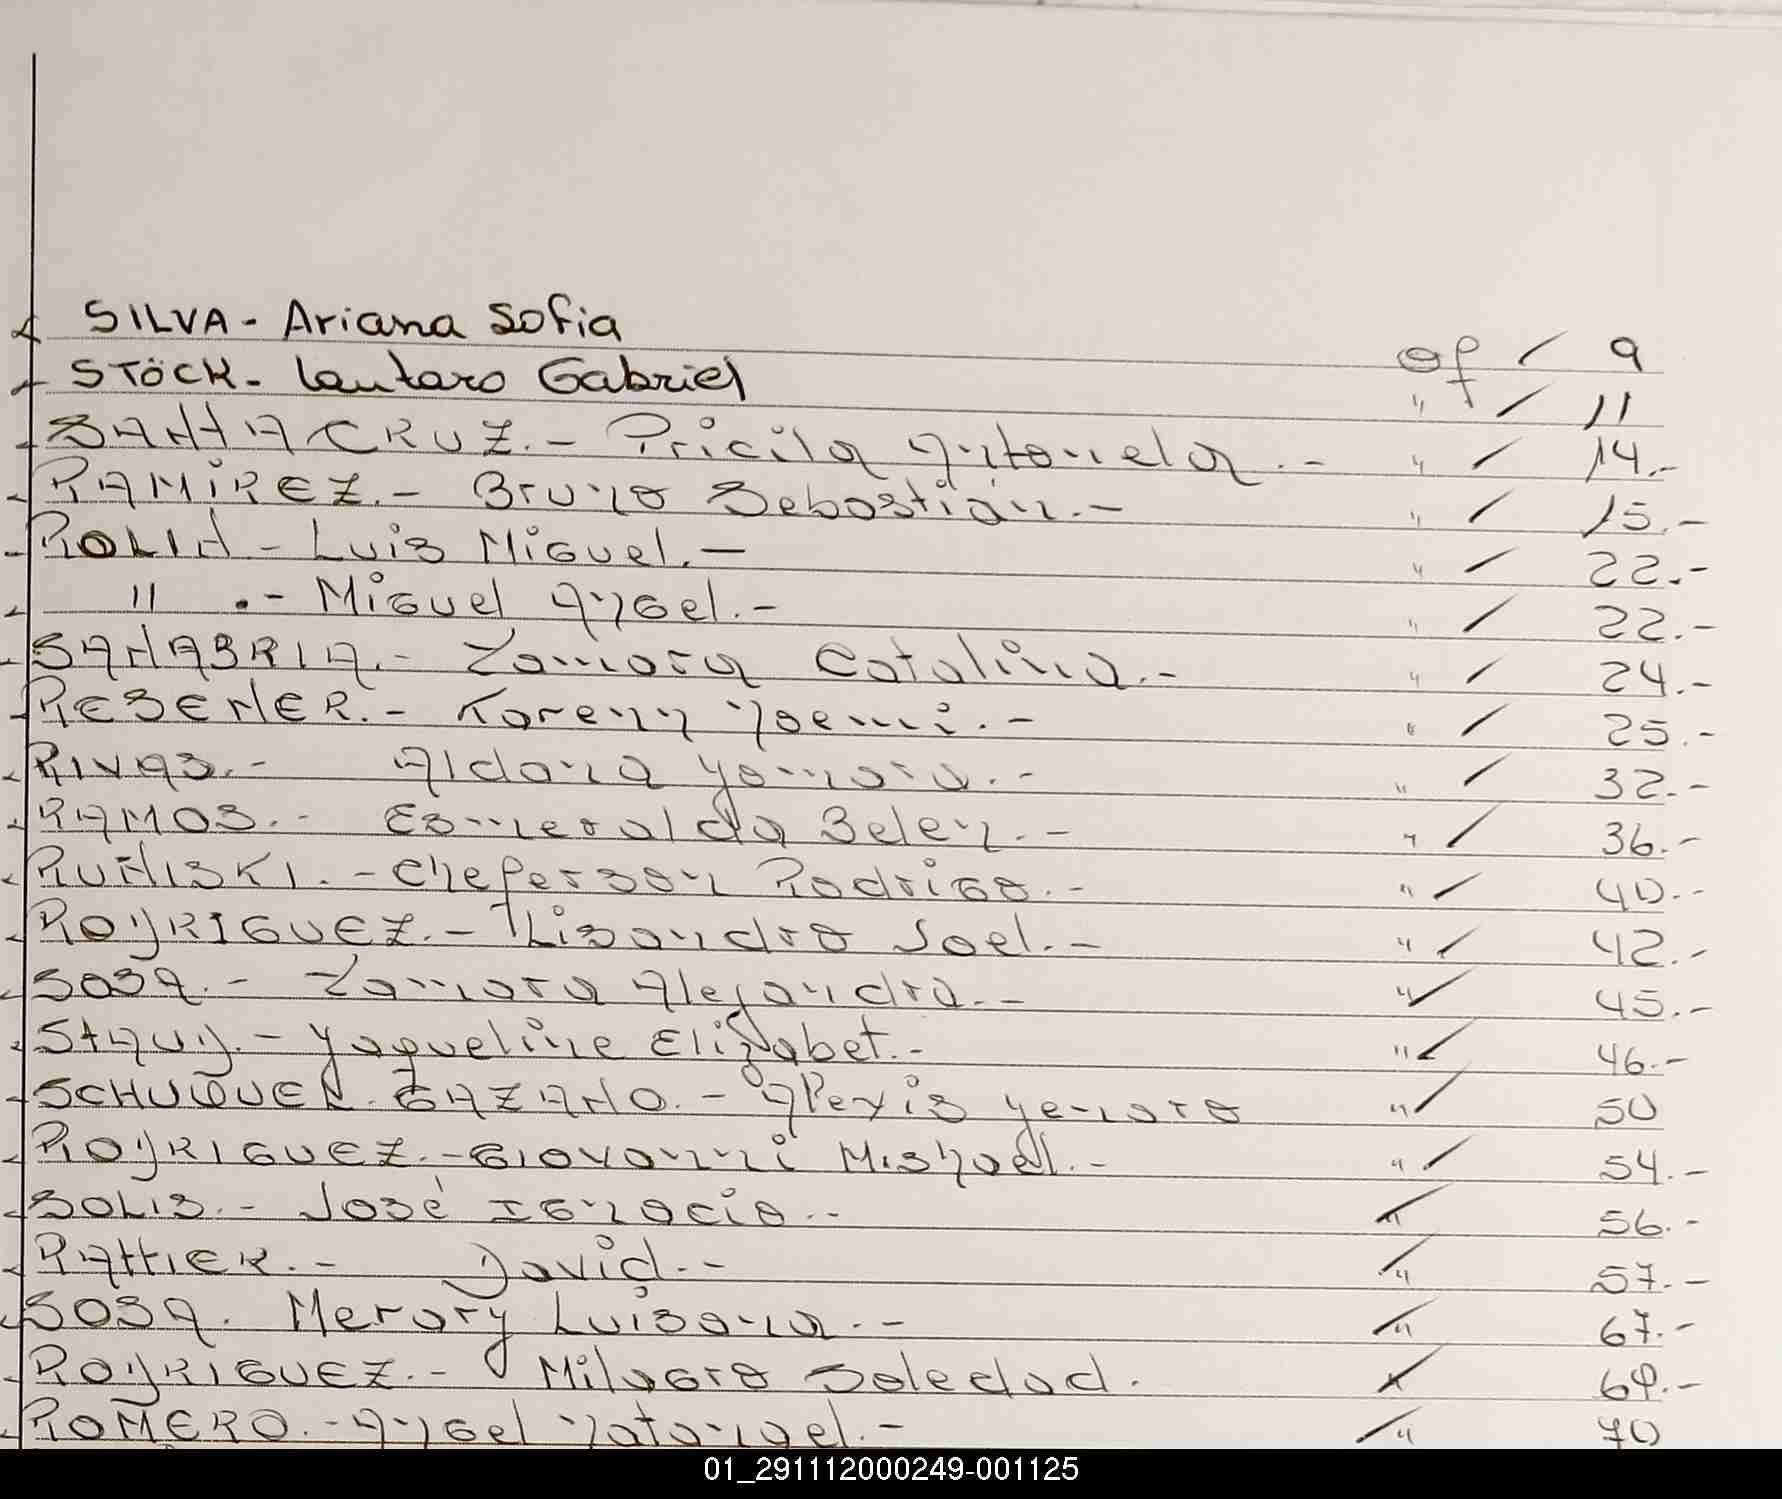 SILVA - Ariana Sofia of / 9
STÖCK - Lautaro Gabriel " / 11
SANTA CRUZ.- Pricila Antonela.- " / 14.-
RAMIREZ.- Bruno Sebastián.- " / 15.-
ROLIN - Luis Miguel.- " / 22.-
" .- Miguel Angel.- " / 22.-
SANABRIA.- Zamora Catalina.- " / 24.-
RESENER.- Karenn Noemi.- " / 25.-
RIVAS.- Aldana Yamara.- " / 32.-
RAMOS.- Esmeralda Belen.- " / 36.-
RUÑISKI.- Cheferson Rodrigo.- " / 40.-
RODRIGUEZ.- Lisandro Joel.- " / 42.-
SOSA.- Zamara Alejandra.- " / 45.-
STAUD.- Yaqueline Elizabet.- " / 46.-
SCHUQUEL GAZANO.- Alexis Genaro " / 50
RODRIGUEZ.- Giovanni Mishael.- " / 54.-
SOLIS.- José Ignacio.- " / 56.-
RATTIER.- David.- " / 57.-
SOSA. Merary Luisana.- " / 67.-
RODRIGUEZ.- Milagro Soledad. / 69.-
ROMERO.- Angel Natanael.- / " 70
01_291112000249-001125